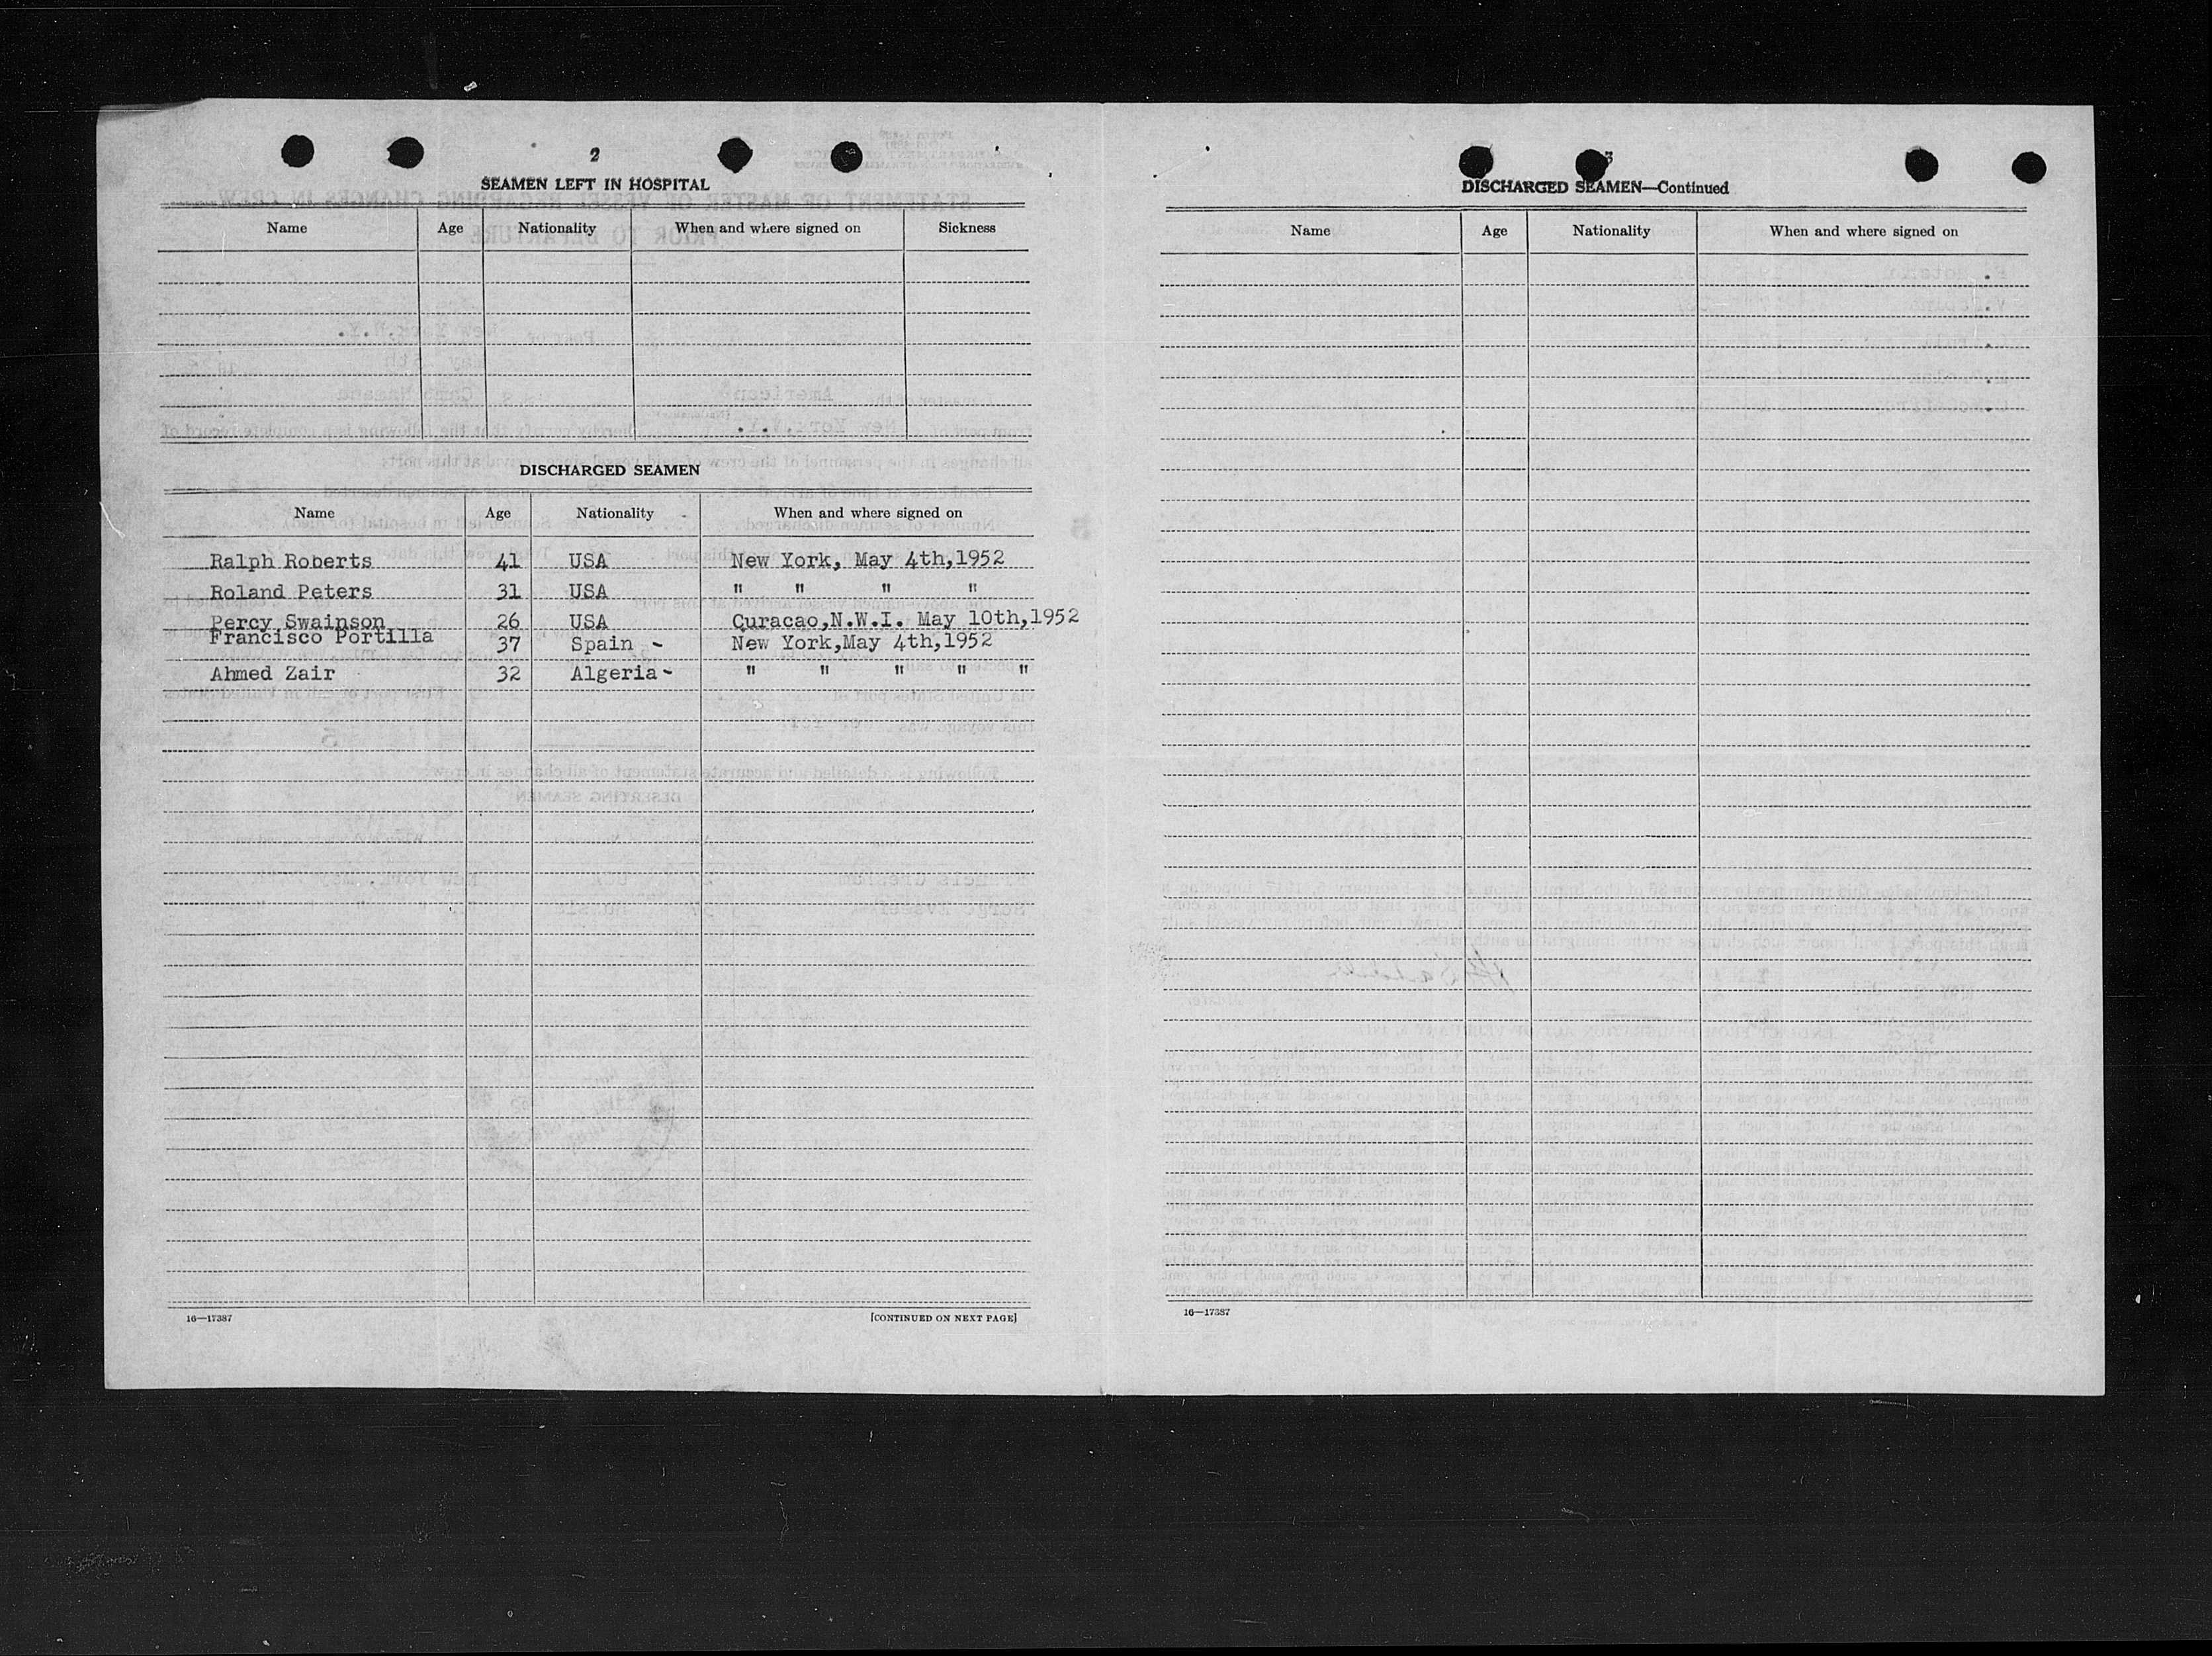 2
SEAMEN LEFT IN HOSPITAL
Name Age Nationality When and where signed on Sickness
DISCHARGED SEAMEN
Name Age Nationality When and where signed on
Ralph Roberts 41 USA New York, May 4th,1952
Roland Peters 31 USA " " " "
Percy Swainson 26 USA Curacao,N.W.I. May 10th,1952
Francisco Portilla 37 Spain - New York,May 4th,1952
Ahmed Zair 32 Algeria- " " " " "
16—17387 [CONTINUED ON NEXT PAGE]
3
DISCHARGED SEAMEN—Continued
Name Age Nationality When and where signed on
16—17387